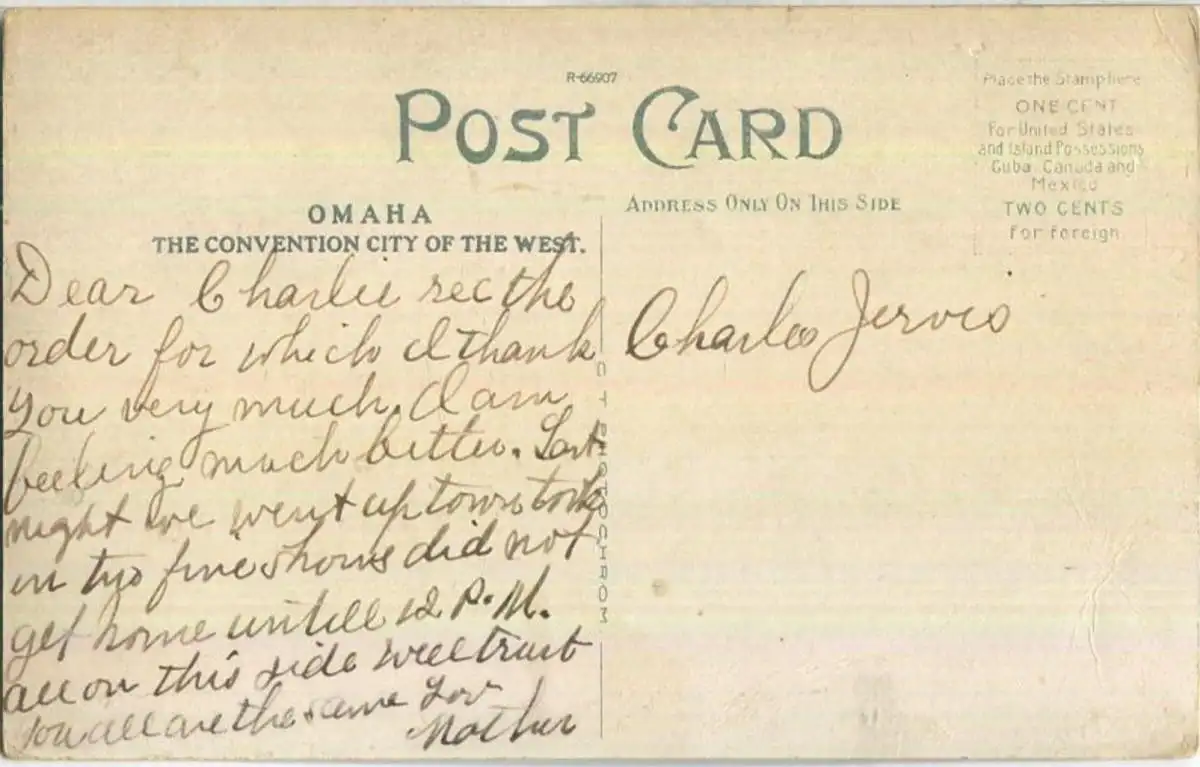 R-66907
POST CARD
Place the Stamp here
ONE CENT
For United States
and Island Possessions
Cuba, Canada and
Mexico
TWO CENTS
for foreign
OMAHA
THE CONVENTION CITY OF THE WEST.
ADDRESS ONLY ON THIS SIDE
Dear Charlie rec the
order for which I thank
you very much. I am
feeling much better. Last
night we went up town took
in two fine shows did not
get home untill 12 P.M.
all on this side well trust
you all are the same Lov
Mother
Charles Jervis